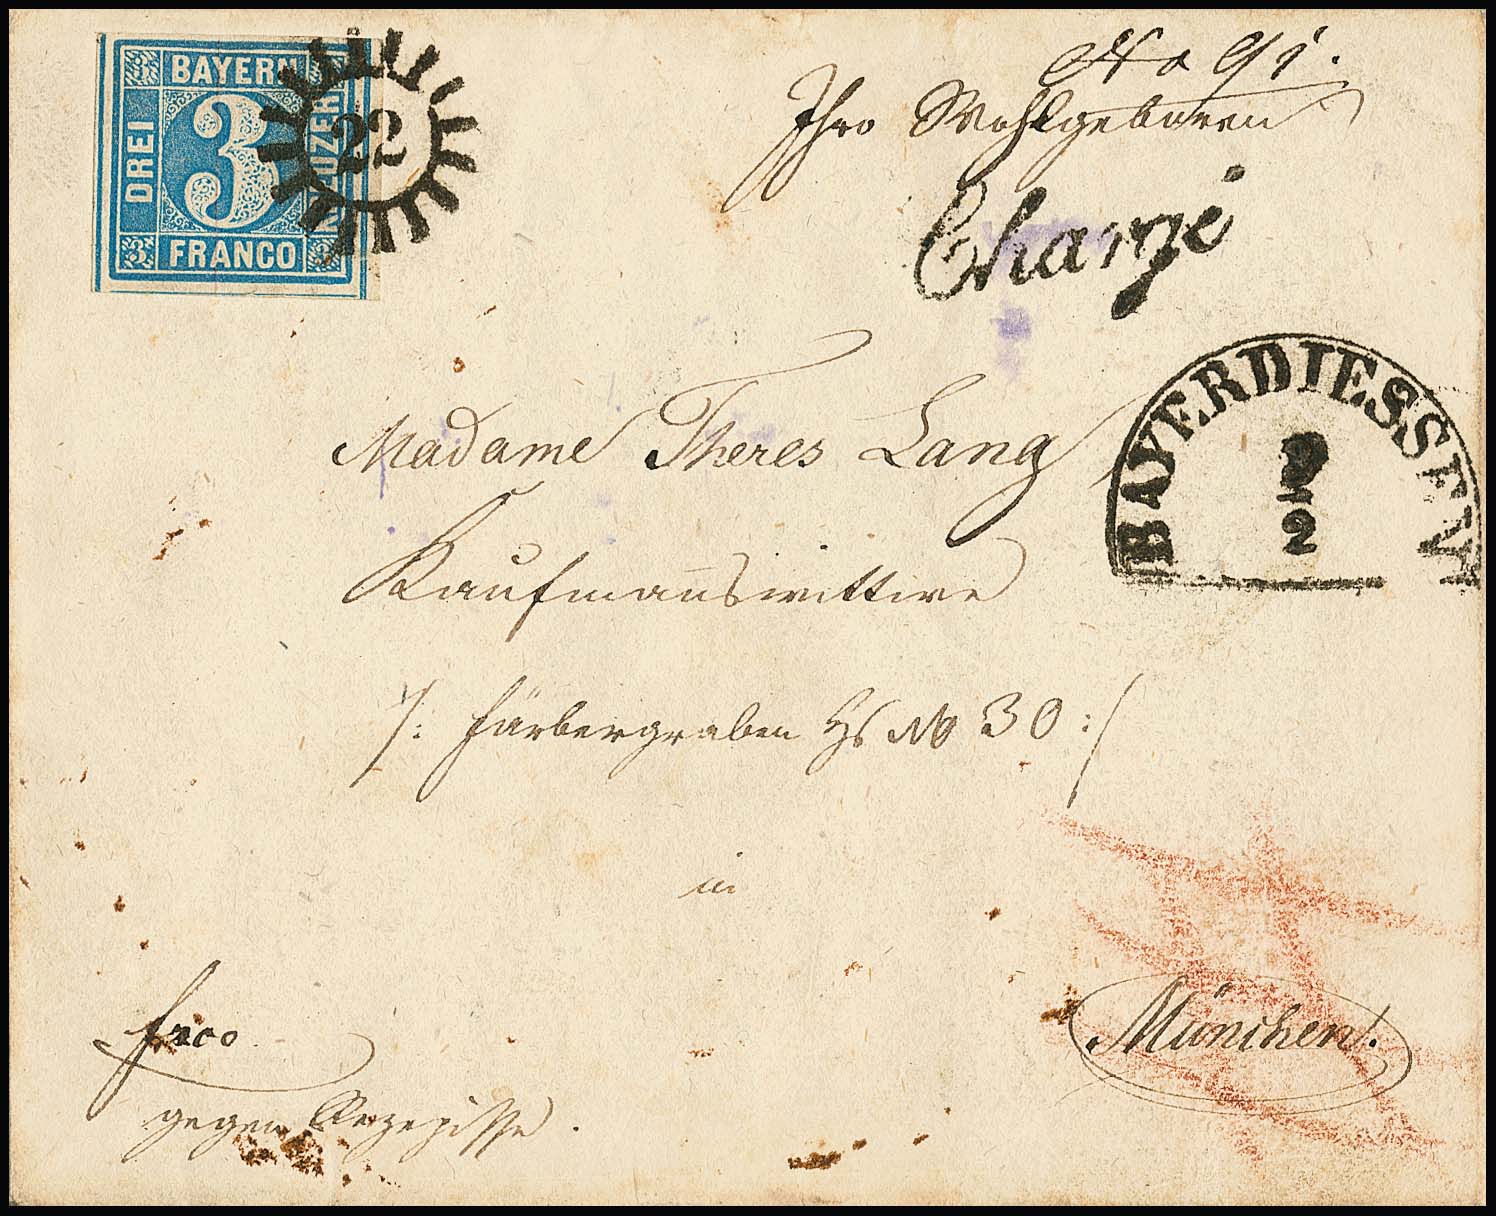 BAYERN
3
DREI
KREUZER
FRANCO
3
3
22
No 91.
Ihro Wohlgeboren
Chargé
BAYERDIESSEN
2
Madame Theres Lang
Kaufmanswittwe
/: Färbergraben Hs No 30 :/
in
München.
frco
gegen